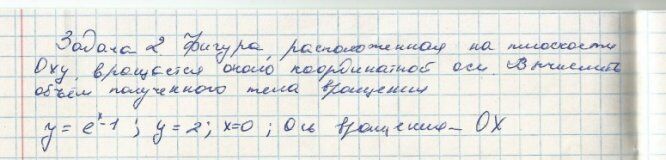 Задача 2 Фигура, расположенная на плоскости
Oxy, вращается около координатной оси Вычислить
объём полученного тела вращения
y = eˣ-1 ; y = 2; x=0 ; Ось вращения – OX